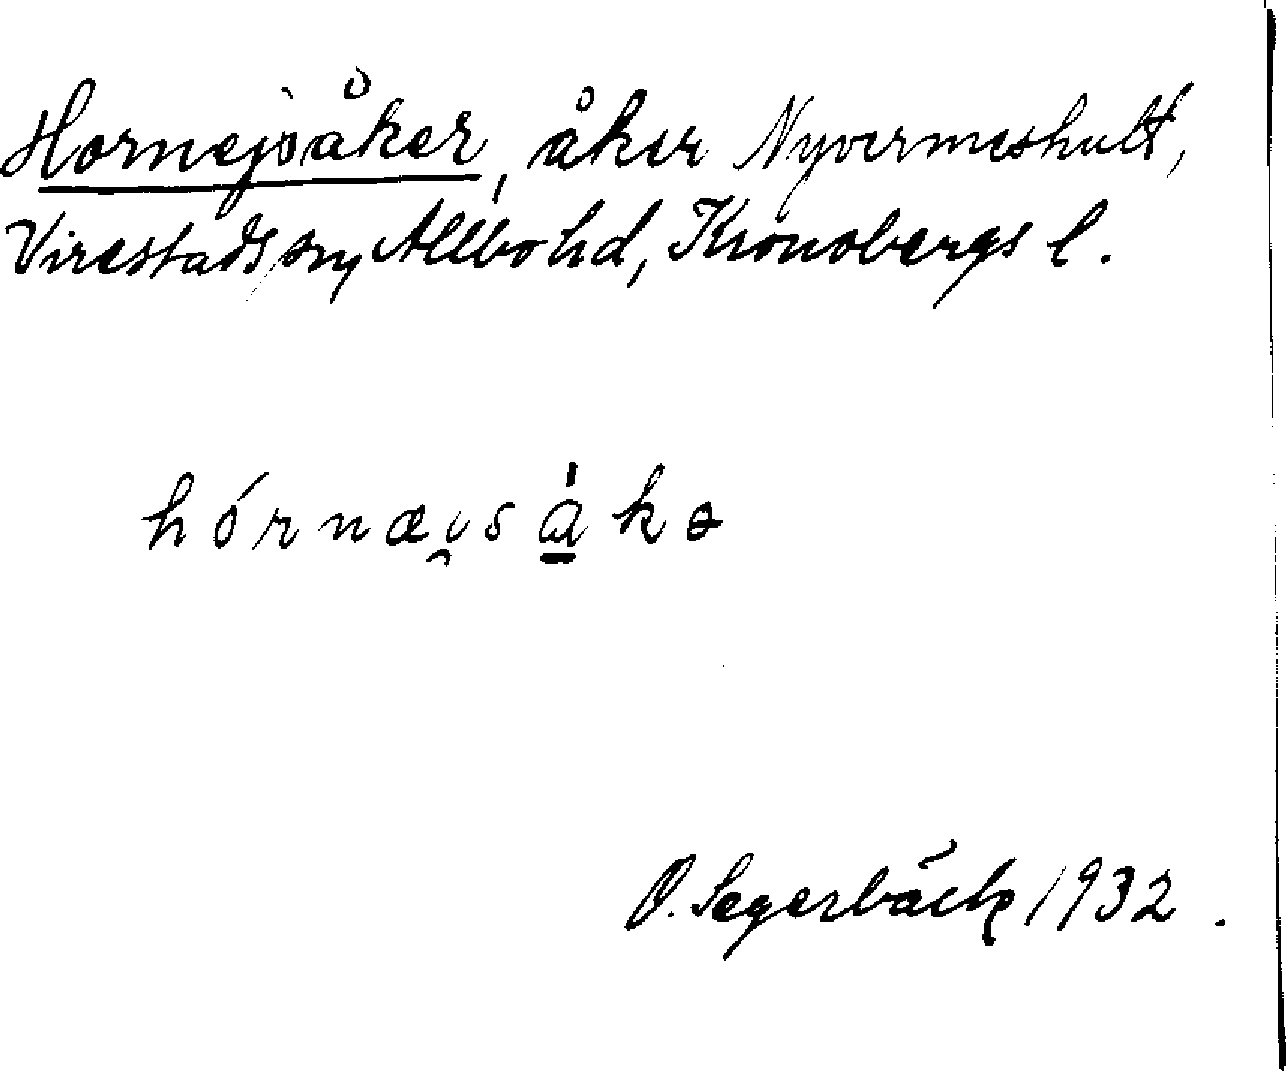 Hornejsåker, åker Nyvermeshult,
Virestads sn, Allbo hd, Kronobergs l.
hórnæi̯sa̱̍kə
O. Segerbäck 1932.